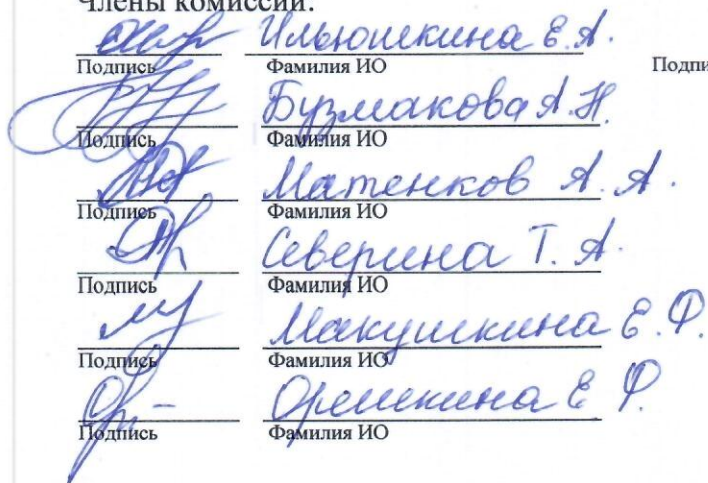 Члены комиссии:
Ильюшкина Е.А.
Подпись Фамилия ИО Подпи
Бузмакова А.Н.
Подпись Фамилия ИО
Матенков А.А.
Подпись Фамилия ИО
Северина Т.А.
Подпись Фамилия ИО
Макушкина Е.Ф.
Подпись Фамилия ИО
Е Ф.
Подпись Фамилия ИО